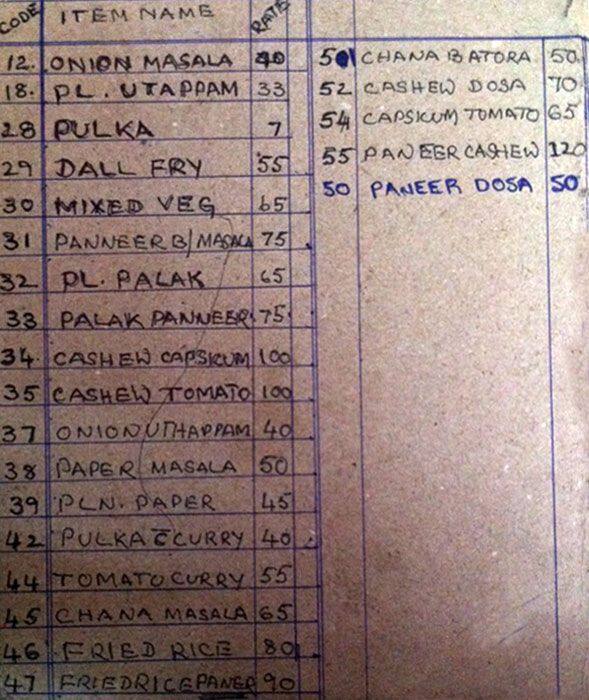 CODE ITEM NAME RATE
12. ONION MASALA 40
18. PL. UTAPPAM 33
28 PULKA 7
29 DALL FRY 55
30 MIXED VEG 65
31 PANNEER B/MASALA 75
32 PL. PALAK 65
33 PALAK PANNEER 75
34. CASHEW CAPSICUM 100
35 CASHEW TOMATO 100
37 ONION UTHAPPAM 40
38 PAPER MASALA 50
39 PLN. PAPER 45
42 PULKA C̄ CURRY 40
44 TOMATO CURRY 55
45 CHANA MASALA 65
46 FRIED RICE 80
47 FRIED RICE PANER 90
50 CHANA BATORA 50
52 CASHEW DOSA 70
54 CAPSICUM TOMATO 65
55 PANEER CASHEW 120
50 PANEER DOSA 50